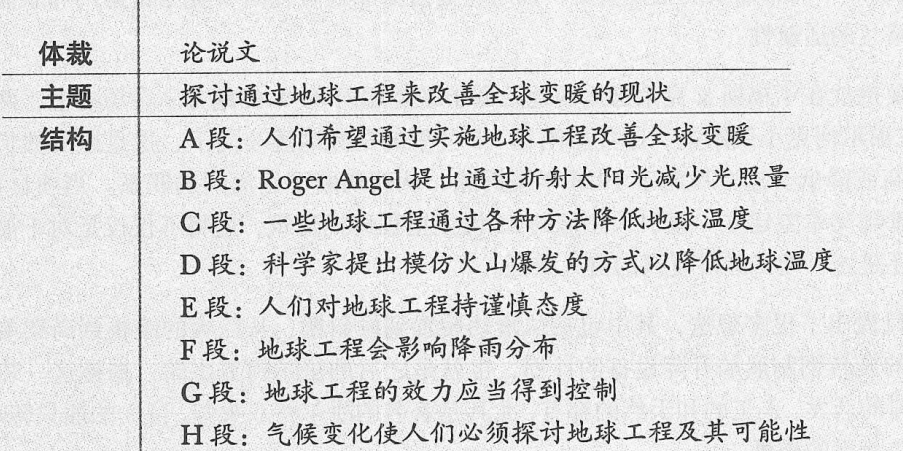 体裁 论说文
主题 探讨通过地球工程来改善全球变暖的现状
结构 A 段：人们希望通过实施地球工程改善全球变暖
B 段：Roger Angel 提出通过折射太阳光减少光照量
C 段：一些地球工程通过各种方法降低地球温度
D 段：科学家提出模仿火山爆发的方式以降低地球温度
E 段：人们对地球工程持谨慎态度
F 段：地球工程会影响降雨分布
G 段：地球工程的效力应当得到控制
H 段：气候变化使人们必须探讨地球工程及其可能性